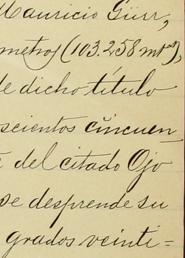 Mauricio Gürr,
metros (103.258 mt²),
de dicho título
scientos cincuen
del citado Ojo
se desprende su
grados veinti=